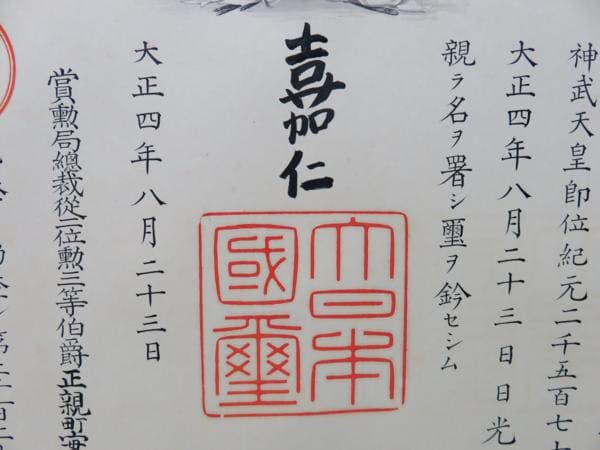 神武天皇即位紀元二千五百七
大正四年八月二十三日日光
親ラ名ヲ署シ璽ヲ鈐セシム
嘉仁
大日本
國璽
大正四年八月二十三日
賞勲局總裁從二位勲三等伯爵正親町實